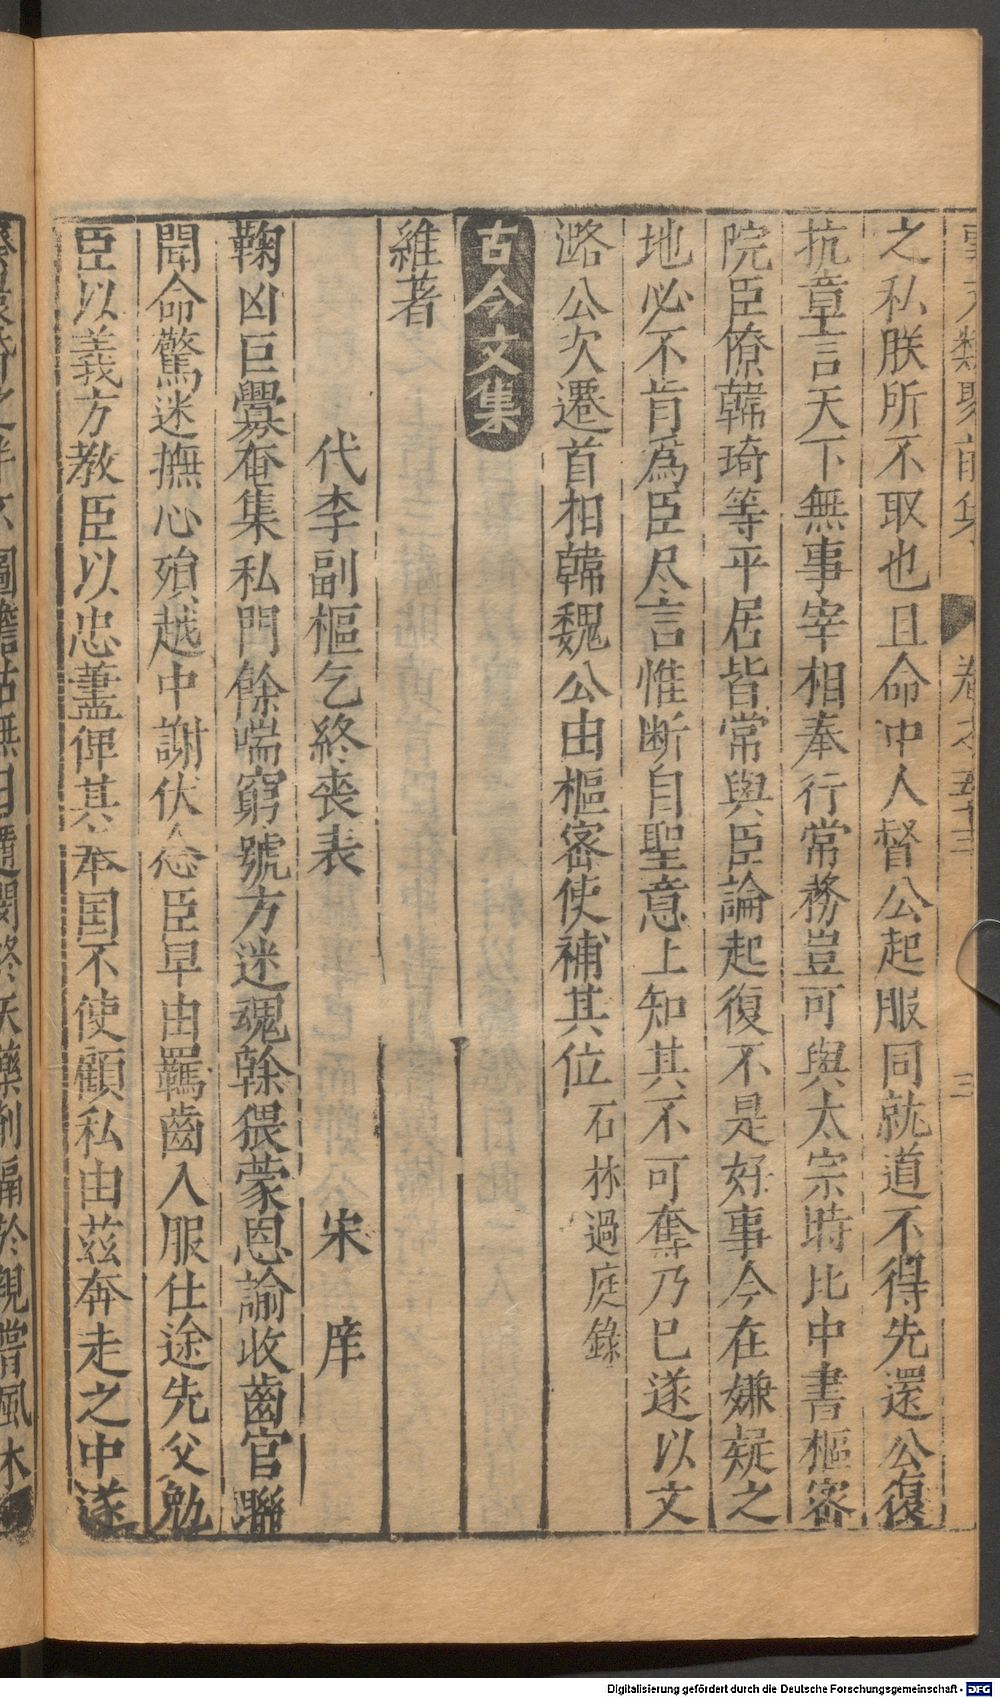 事文類聚前集 卷之五十三 三
之私朕所不取也且命中人督公起服同就道不得先還公復
抗章言天下無事宰相奉行常務豈可與太宗時比中書樞密
院臣僚韓琦等平居皆常與臣論起復不是好事今在嫌疑之
地必不肯爲臣尽言惟断自聖意上知其不可奪乃已遂以文
潞公次遷首相韓魏公由樞密使補其位 石林過庭錄
古今文集
雜著
代李副樞乞終喪表 宋庠
鞠凶巨釁奄集私門餘喘窮號方迷魂幹猥蒙恩諭收齒官聯
聞命驚迷撫心殞越中謝伏念臣早由羈齒入服仕途先父勉
臣以義方教臣以忠藎俾其奉国不使顧私由茲奔走之中遂
Digitalisierung gefördert durch die Deutsche Forschungsgemeinschaft - DFG